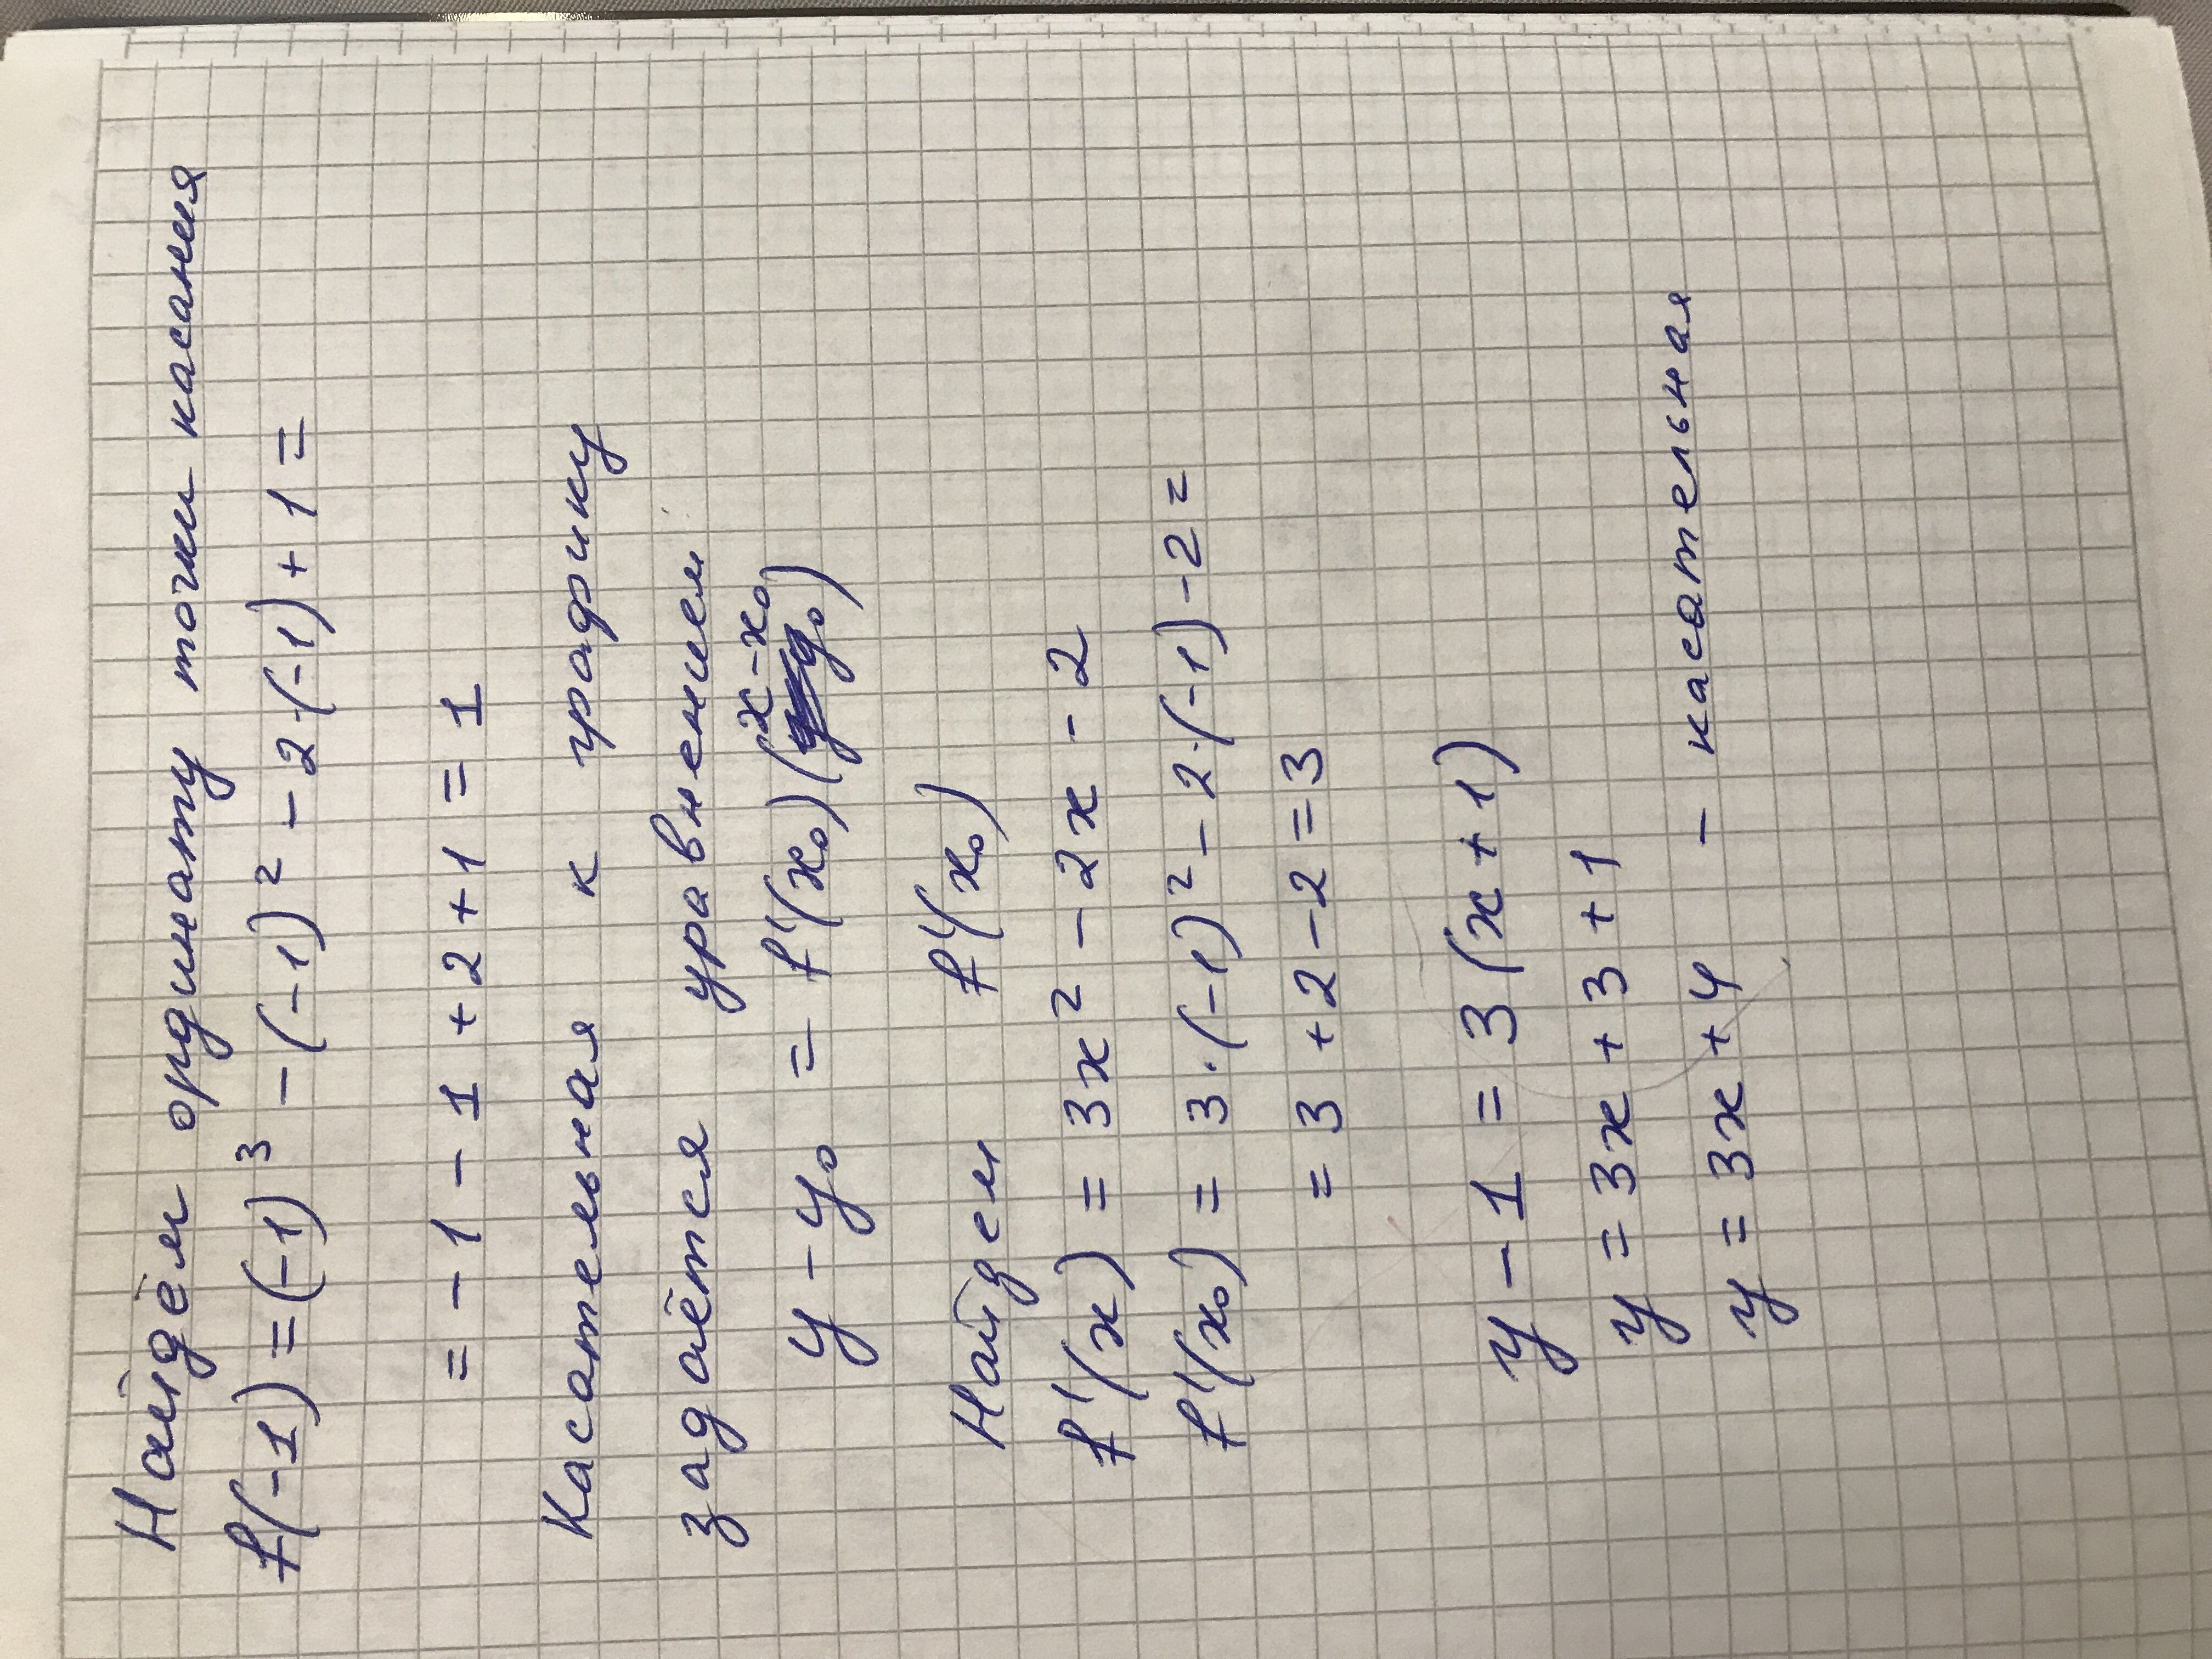 Найдём ординату точки касания
f(-1) = (-1)³ - (-1)² - 2·(-1) + 1 =
= -1 - 1 + 2 + 1 = 1
Касательная к графику
задаётся уравнением
y - y₀ = f'(x₀)(x - x₀)
Найдем f'(x₀)
f'(x) = 3x² - 2x - 2
f'(x₀) = 3·(-1)² - 2·(-1) - 2 =
= 3 + 2 - 2 = 3
y - 1 = 3(x + 1)
y = 3x + 3 + 1
y = 3x + 4 - касательная